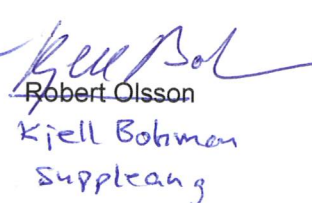 Kjell Boh
Robert Olsson
Kjell Bohman
Suppleang